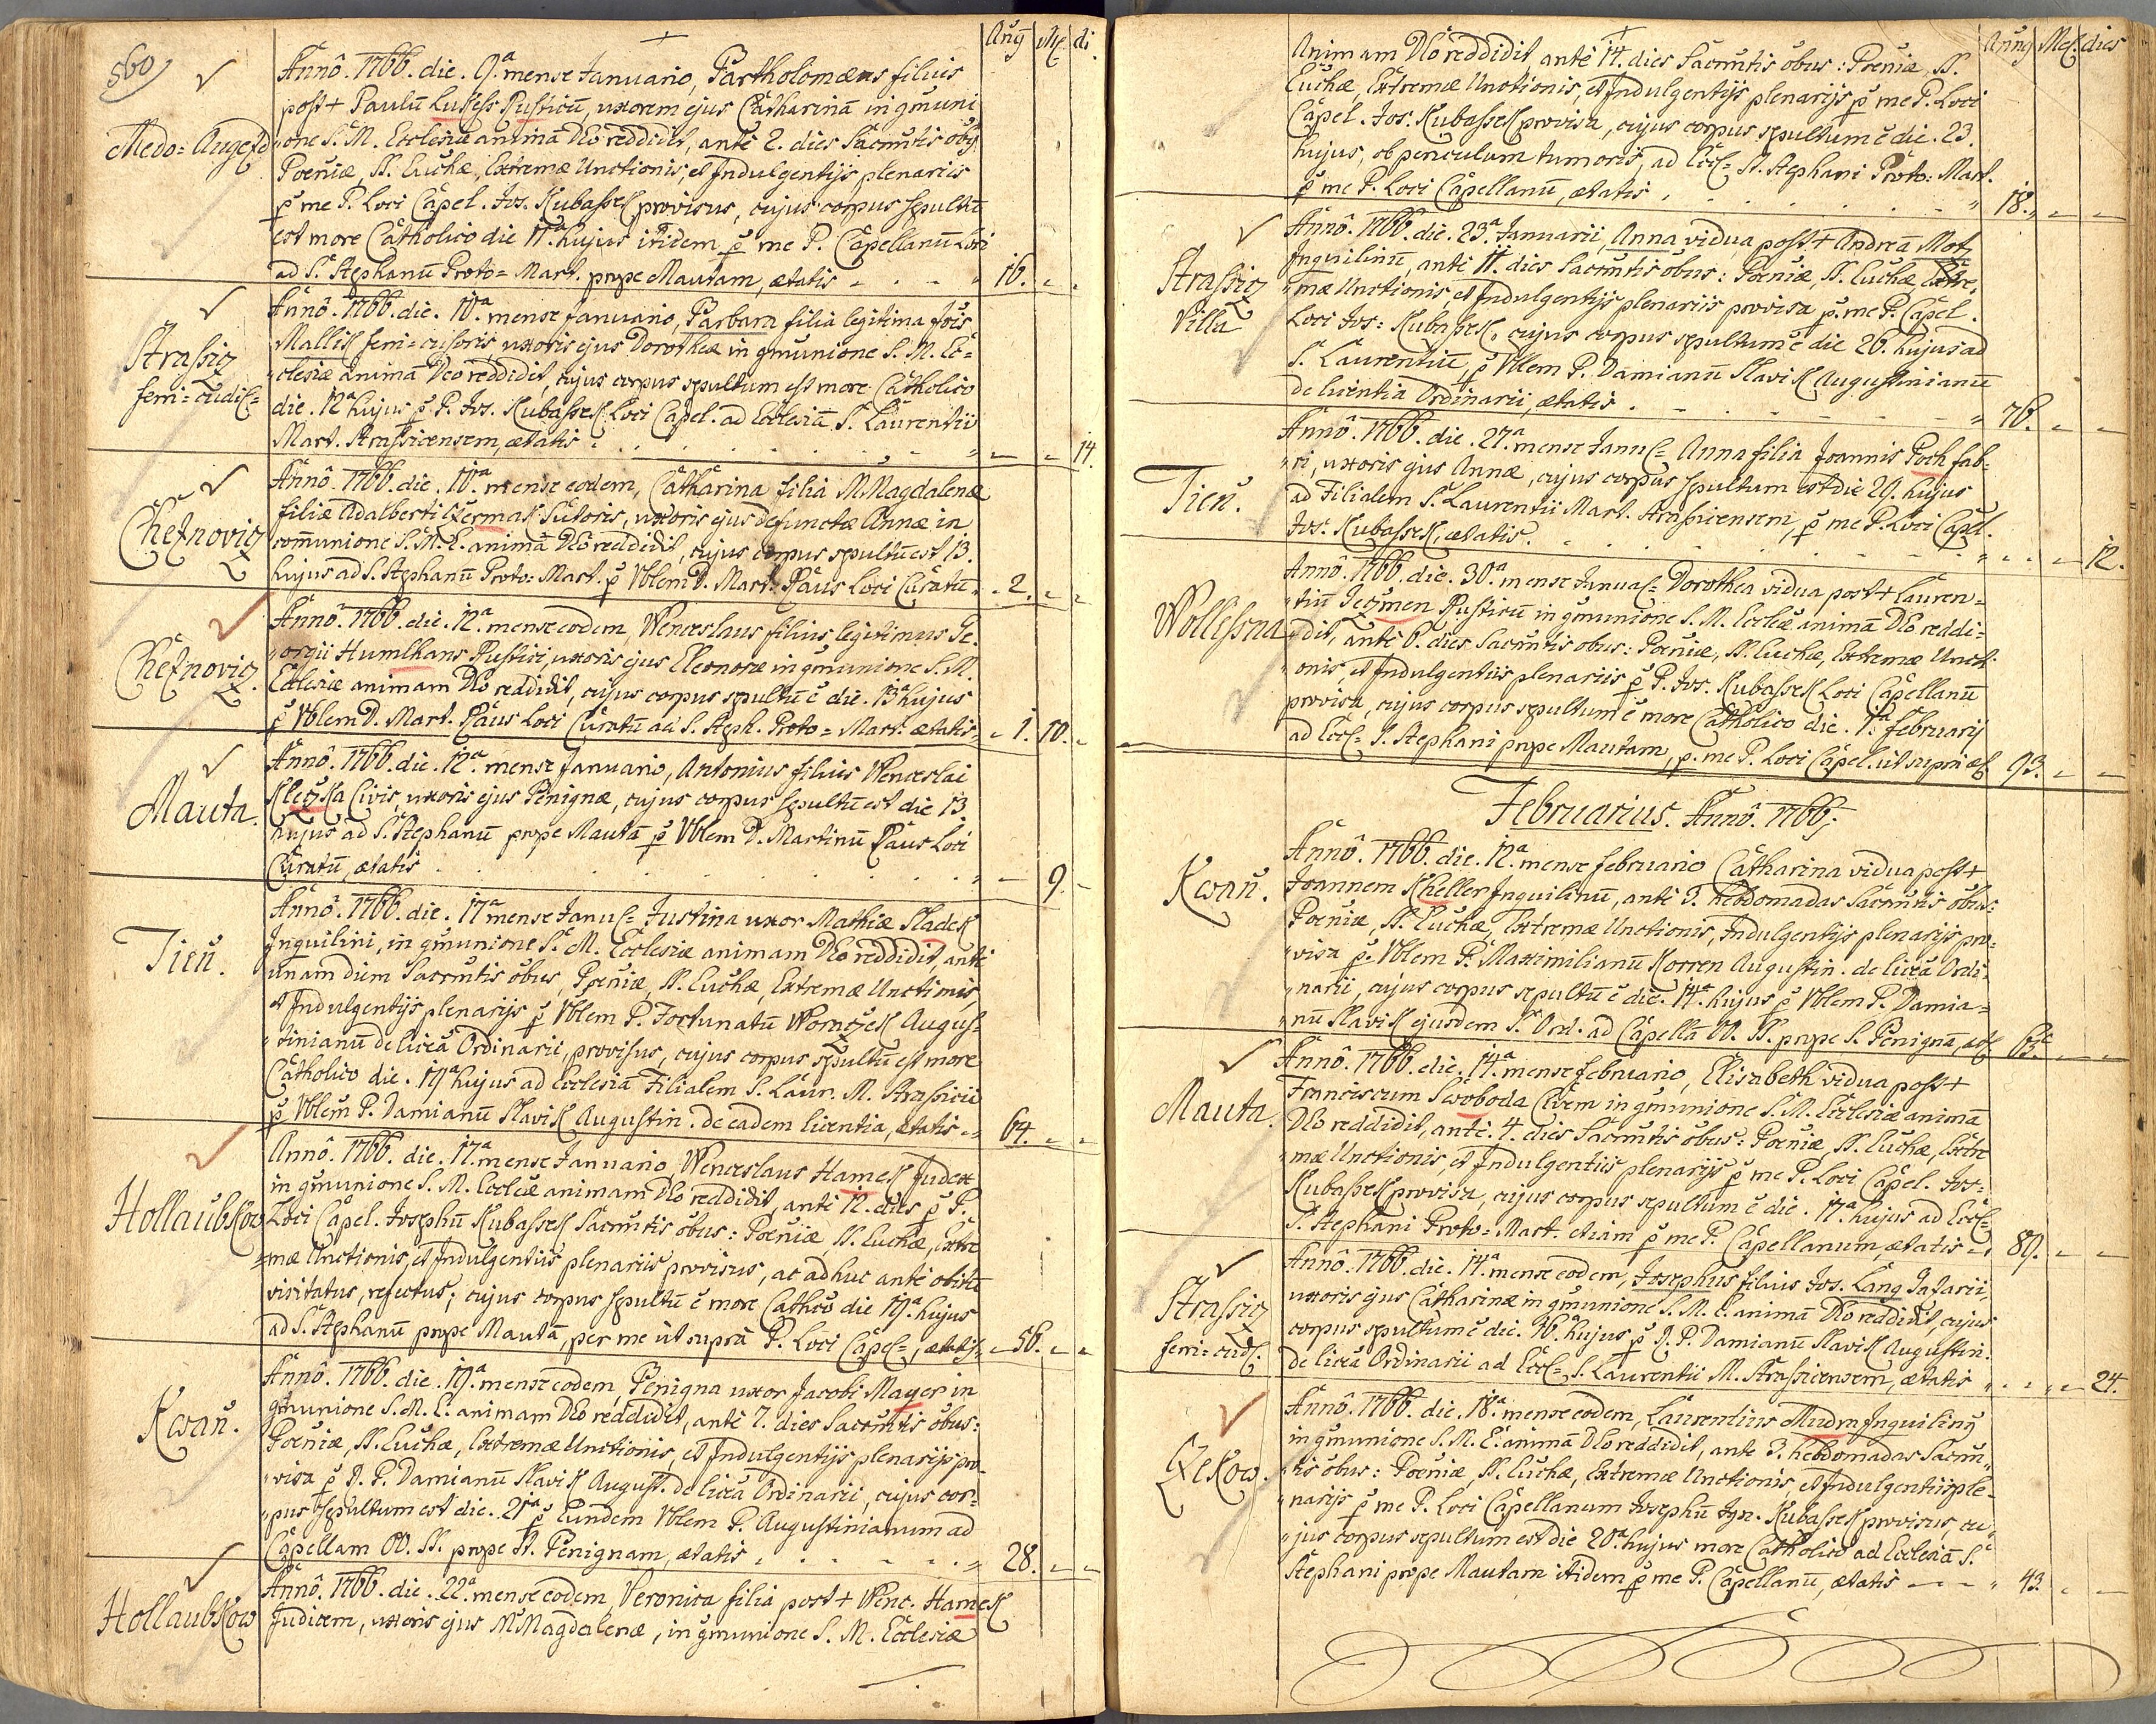 560
Anny Ms. di.
Medo= Augezd
Annô. 1766. die. 9.a mense Januario, Bartholomæus filius
post + Paulū Lukess Rusticū, uxorem ejus Catharinā in gmuni
„one S. M. Ecclesiæ animā Deo reddidit, ante 2. dies Sacmtis obus
Poeniæ, SS. Euchæ, Extremæ Unctionis, et Indulgentijs plenariis
p me P. Loci Capel. Jos. Kubassek provisus, cujus corpus sepultū
est more Catholico die 11.a hujus itidem p me P. Capellanū Loci
ad S. Stephanū Proto= Mart. prope Mautam, ætatis . . . „ 16. „ „
Strassicz
feri=cudis=
Annô. 1766. die. 10.a mense Januario, Barbara filia legitima Jois
Mallik feri=cusoris uxoris ejus Dorotheæ in gmunione S. M. Ec=
„clesiæ animā Deo reddidit, cujus corpus sepultum est more Catholico
die. 12.a hujus p P. Jos. Kubassek Loci Capel. ad Ecclesiā S. Laurentii
Mart. Strassicensem, ætatis . . . . . . „ – „ 14.
Cheznovicz
Annô. 1766. die. 10.a mense eodem, Catharina filia M. Magdalenæ
filiæ Adalberti Czermak Sutoris, uxoris ejus defunctæ Annæ in
communione S. M. E. animā Deo reddidit, cujus corpus sepultū est 13.
hujus ad S. Stephanū Proto: Mart. p Vblem D. Mart. Paus Loci Curatū „ 2. „ „
Cheznovicz.
Annô. 1766. die. 12.a mense eodem, Wenceslaus filius legitimus Ge„
„orgii Humlhans Rustici, uxoris ejus Eleonoræ in gmunione S. M.
Ecclesiæ animam Deo reddidit, cujus corpus sepultū ē die. 13.a hujus
p Vblem D. Mart. Paus Loci Curatū ad S. Steph. Proto= Mart. ætatis „ 1. 10. „
Mauta.
Annô. 1766. die. 12.a mense Januario, Antonius filius Wenceslai
Kleczka Civis, uxoris ejus Benignæ, cujus corpus sepultū est die 13.
hujus ad S. Stephanū prope Mautā p Vblem D. Martinū Paus Loci
Curatū, ætatis . . . . . . . . „ – 9. –
Tien.
Annô. 1766. die. 17.a mense Janu= Justina uxor Mathiæ Sladek
Inquilini, in gmunione S. M. Ecclesiæ animam Deo reddidit, ante
unam diem Sacmtis obus, Poeniæ, SS. Euchæ, Extremæ Unctionis,
et Indulgentijs plenarijs p Vblem P. Fortunatū Woraczek Augus=
„tinianū de liciā Ordinarii, provisus, cujus corpus sepultū est more
Catholico die. 19.a hujus ad Ecclesiā Filialem S. Laur. M. Strassicii
p Vblem P. Damianū Slavik Augustin. de eadem licentia, ætatis „ 64. „ „
Hollaubkow
Annô. 1766. die. 17.a mense Januario, Wenceslaus Hamek Judex
in gmunione S. M. Eccleiæ animam Deo reddidit, ante 12. dies p P.
Loci Capel. Josephū Kubassek Sacmtis obus: Poeniæ, SS. Euchæ, Extre
„mæ Unctionis, et Indulgentiis plenariis provisus, ac adhuc ante obitū
visitatus, refectus; cujus corpus sepultū ē more Cathco die 19.a hujus
ad S. Stephanū prope Mautā, per me ut supra P. Loci Capel=, ætatis „ 56. „ „
Kwan.
Annô. 1766. die. 19.a mense eodem, Benigna uxor Jacobi Mayer in
gmunione S. M. E. animam Deo reddidit, ante 7. dies Sacmtis obus:
Poeniæ, SS. Euchæ, Extremæ Unctionis, et Indulgentijs plenarijs pro„
„visa p A. P. Damianū Slavik August. de liciā Ordinarii, cujus cor=
„pus sepultum est die. 21.a p Eundem Vblem P. Augustinianum ad
Capellam OO. SS. prope S. Benignam, ætatis . . . . . „ 28. „ –
Hollaubkow
Annô. 1766. die. 22.a mense eodem, Veronica filia post + Wenc. Hamek
Judicem, uxoris ejus M Magdalenæ, in gmunione S. M. Ecclesiæ
Anny Mes. dies
Animam Deo reddidit ante 14. dies Sacmtis obus: Poeniæ, SS.
Euchæ, Extremæ Unctionis, et Indulgentijs plenarijs p me P. Loci
Capel. Jos: Kubassek provisa, cujus corpus sepultum ē die. 23.
hujus, ob periculum tumoris, ad Eccl= S. Stephani Proto: Mart.
p me P. Loci Capellanū, ætatis . . . . . „ 18. „ –
Strassicz
Villa
Annô. 1766. die. 23.a Januarii, Anna vidua post + Andreā Mot
Inquilinū, ante 11. dies Sacmtis obus: Poeniæ, SS. Euchæ, Extre„
„mæ Unctionis, et Indulgentijs plenariis provisa p. me P. Capel.
Loci Jos: Kubassek, cujus corpus sepultum ē die 26. hujus ad
S. Laurentiū, p Vblem P. Damianū Slavik Augustinianū
de licentia Ordinarii, ætatis . . . . . . „ 76. „ –
Tien.
Annô. 1766. die. 27.a mense Janu= Anna filia Joannis Poch fab=
„ri, uxoris ejus Annæ, cujus corpus sepultum est die 29. hujus
ad Filialem S. Laurentii Mart. Strassicensem, p me P. Loci Capel.
Jos: Kubassek, ætatis. . . . . . . . „ . – 12.
Wollessna
Annô. 1766. die. 30.a mense Janua= Dorothea vidua post + Lauren=
„tiū Jeczmen Rusticū in gmunione S. M. Eccleiæ animā Deo reddi=
„dit, ante 6. dies Sacmtis obus: Poeniæ, SS. Euchæ, Extremæ Uncti„
„onis, et Indulgentiis plenariis p P. Jos. Kubassek Loci Capellanū
provisa, cujus corpus sepultum ē more Catholico die. 1.a Februarij
ad Eccl= S. Stephani prope Mautam, p. me P. Loci Capel. ut supra æt. 93. „ –
Februarius. Annô. 1766.
Kwan.
Annô. 1766. die. 12.a mense februario Catharina vidua post +
Joannem Kheller Inquilinū, ante 3. hebdomadas Sacmtis obus:
Poeniæ, SS. Euchæ, Extremæ Unctionis, Indulgentijs plenarijs pro„
„visa p. Vblem P. Maximilianū Korren Augustin. de liciā Ordi„
„narii, cujus corpus sepultū ē die. 14.a hujus p Vblem P. Damia=
„nū Slavik ejusdem S. Ord. ad Capellā OO. SS. prope S. Benignā, æt. 63. – –
Mauta.
Annô. 1766. die. 14.a mense februario, Elisabeth vidua post +
Franciscum Swoboda Civem in gmunione S. M. Ecclesiæ animā
Deo reddidit, ante. 4. dies Sacmtis obus: Poeniæ, SS. Euchæ, Extre
„mæ Unctionis, et Indulgentiis plenarijs p me P. Loci Capel. Jos:
Kubassek provisa, cujus corpus sepultum ē die. 17.a hujus ad Eccl=
S. Stephani Proto= Mart. etiam p me P. Capellanum ætatis „ 89. „ –
Strassicz
feri=cuds.
Annô. 1766. die. 14. mense eodem, Josephus filius Jos. Lang Jatarii,
uxoris ejus Catharinæ in gmunione S. M. E. animā Deo reddidit, cujus
corpus sepultum ē die. 16.a hujus p A. P. Damianū Slavik Augustin.
de liciā Ordinarii ad Eccl= S. Laurentii M. Strassicensem, ætatis „ . „ – 24.
Czekow.
Annô. 1766. die. 18.a mense eodem, Laurentius Mudra Inquilinus
in gmunione S. M. E. animā Deo reddidit, ante 3. hebdomadas Sacm„
„tis obus: Poeniæ, SS. Euchæ, Extremæ Unctionis, et Indulgentiis ple„
„narijs p me P. Loci Capellanum Josephū Ign. Kubassek provisus, cu„
„jus corpus sepultum est die 20.a hujus more Catholico ad Ecclesiā S.
Stephani prope Mautam itidem p me P. Capellanū, ætatis – – „ 43. „ –